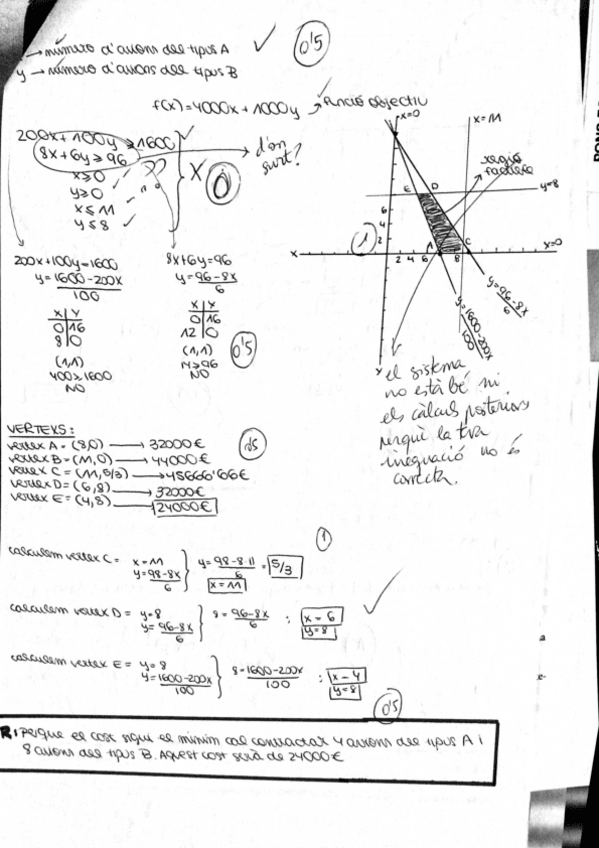 x → número d'avions del tipus A
0'5
y → número d'avions del tipus B
f(x) = 4000x + 1000y → funció objectiu
200x + 100y ≥ 1600
8x + 6y ≥ 96
x ≥ 0
y ≥ 0
x ≤ 11
y ≤ 8
??
X
0
d'on
surt?
200x + 100y = 1600
y = 1600 - 200x
100
x y
0 16
8 0
(1,1)
400 ≥ 1600
NO
8x + 6y = 96
y = 96 - 8x
6
x y
0 16
12 0
(1,1)
14 ≥ 96
NO
0'5
x=0
x = 11
regió
factible
y=8
E D
6
4
2
1
A C
x
2 4 6 8
x=0
y = 96-8x
6
y = 1600-200x
100
y
el sistema
no està bé ni
els càlculs posteriors
perquè la 1ra
inequació no és
correcta.
VÈRTEXS:
vèrtex A = (8,0) → 32000€
vèrtex B = (11,0) → 44000€
vèrtex C = (11, 5/3) → 45666'66€
vèrtex D = (6,8) → 32000€
vèrtex E = (4,8) → 24000€
0'5
1
calculem vèrtex C = x = 11
y = 98-8x
6
y = 98-8·11
6
= 5/3
x = 11
calculem vèrtex D = y = 8
y = 96-8x
6
8 = 96-8x
6
: x = 6
y = 8
calculem vèrtex E = y = 8
y = 1600-200x
100
8 = 1600-200x
100
: x = 4
y = 8
0'5
R: Perque el cost sigui el mínim cal contractar 4 avions del tipus A i
8 avions del tipus B. Aquest cost serà de 24000€